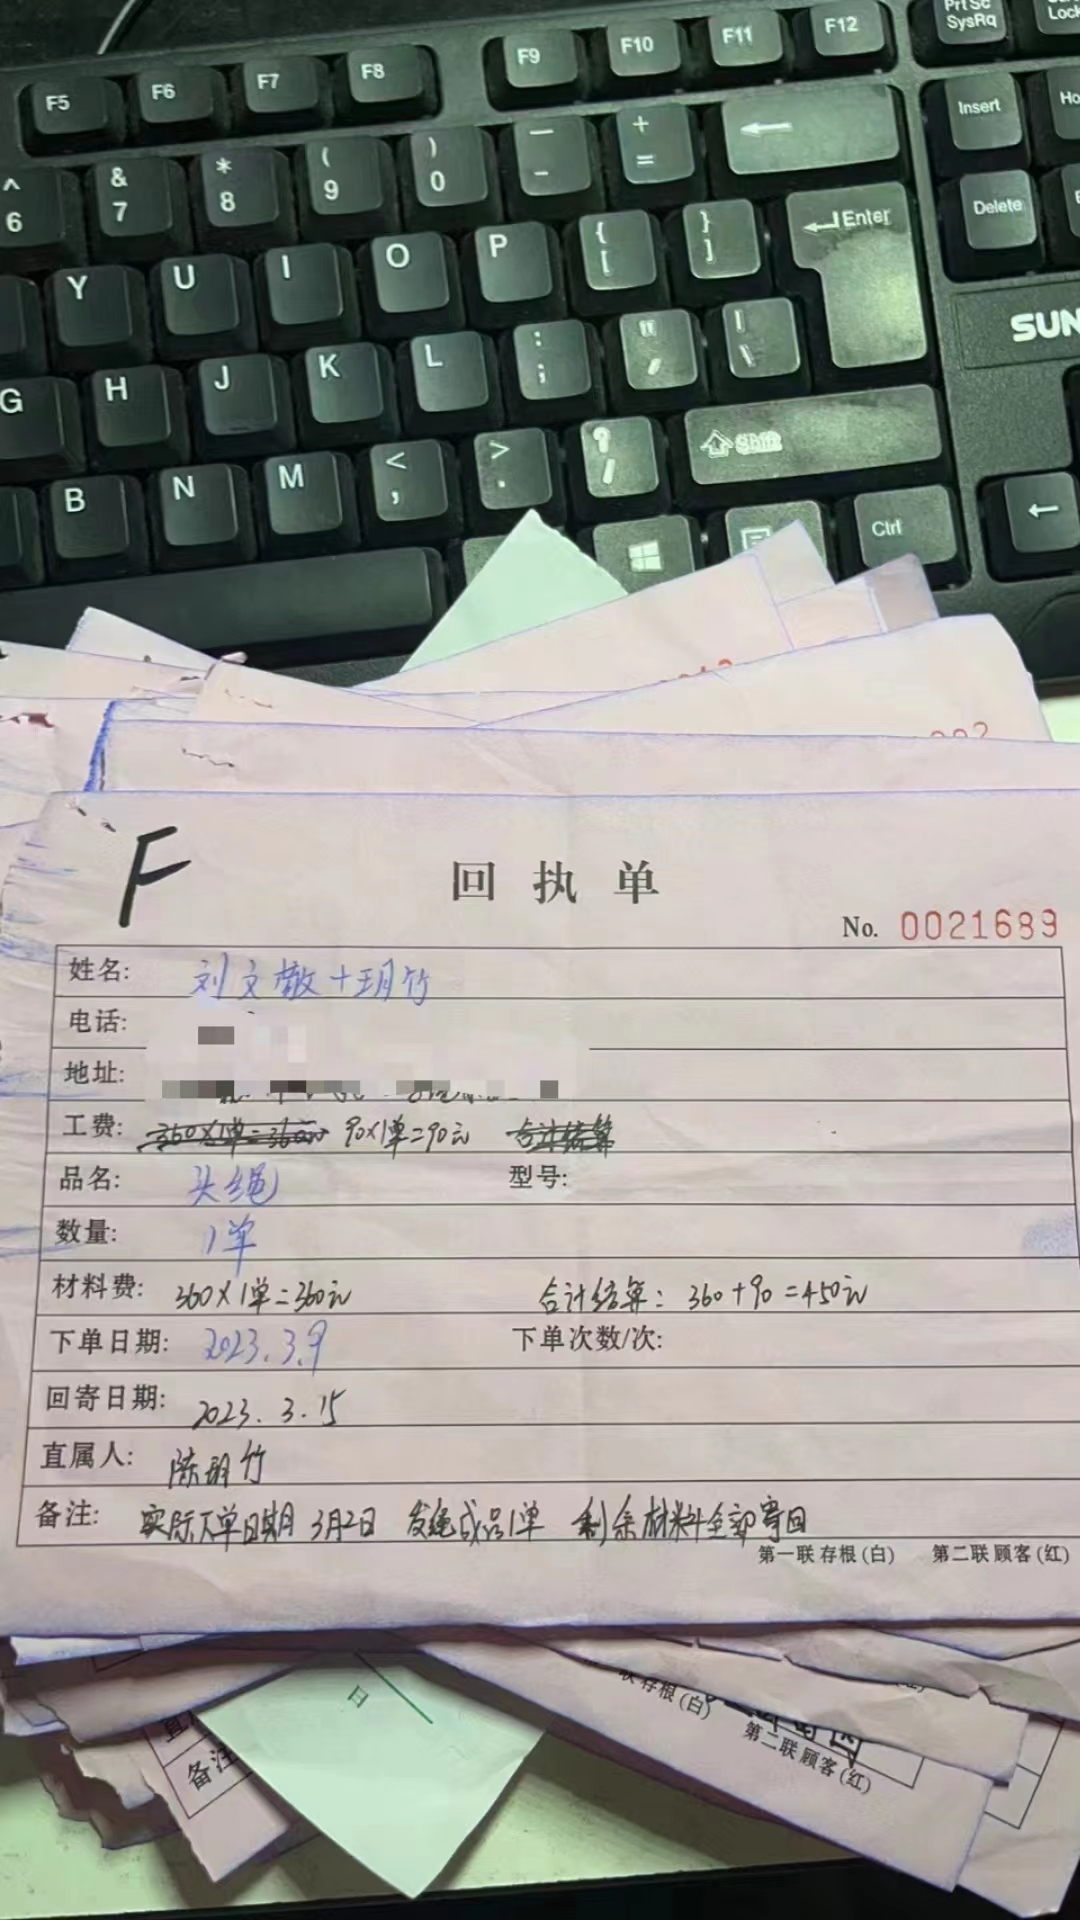 F5 F6 F7 F8 F9 F10 F11 F12 PrtSc SysRq
^ 6 & 7 * 8 ( 9 ) 0 — - + = Insert
Y U I O P { [ } ] Enter Delete
G H J K L : ; " ' | \ SUN
B N M < , > . ? / Shift
Ctrl
F
回执单
No. 0021689
姓名: 刘文敬+玥竹
电话:
地址:
工费: 360×1单=360元 90×1单=90元 合计结算
品名: 头绳 型号:
数量: 1单
材料费: 360×1单=360元 合计结算: 360+90=450元
下单日期: 2023.3.9 下单次数/次:
回寄日期: 2023.3.15
直属人: 陈玥竹
备注: 实际下单日期3月2日 发绳成品1单 剩余材料全部寄回
第一联 存根(白) 第二联 顾客(红)
日
联 存根(白)
第二联 顾客(红)
备注